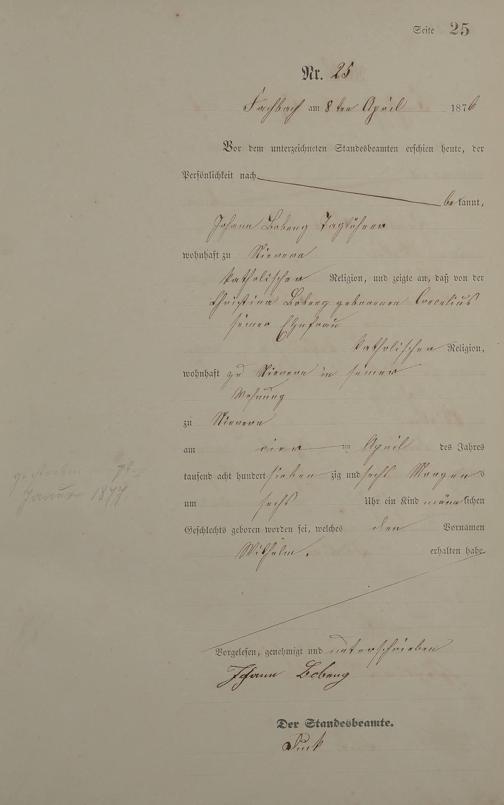 Seite 25
Nr. 25
Fachbach am 8ten April 1876
Vor dem unterzeichneten Standesbeamten erschien heute, der
Persönlichkeit nach
bekannt,
Johann Bobeng Taglöhner
wohnhaft zu Nievern
katholischer Religion, und zeigte an, daß von der
Christina Bobeng geborenen Cornelius
seiner Ehefrau
katholischer Religion,
wohnhaft zu Nievern in seiner
Wohnung
zu Nievern
am vier ten April des Jahres
tausend acht hundert sieben zig und sechs Morgens
um sechs Uhr ein Kind männlichen
Geschlechts geboren worden sei, welches den Vornamen
Wilhelm.
erhalten habe.
gestorben
Januar 1877
Vorgelesen, genehmigt und unterschrieben
Johann Bobeng
Der Standesbeamte.